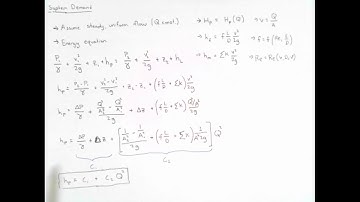 System Demand
→ Assume steady, uniform flow (Q const.)
→ Energy equation
P₁/γ + V₁²/2g + z₁ + hₚ = P₂/γ + V₂²/2g + z₂ + h_L
hₚ = (P₂-P₁)/γ + (V₂²-V₁²)/2g + z₂-z₁ + (f L/D + ΣK) V²/2g
hₚ = ΔP/γ + (Q²/A₂² - Q²/A₁²)/2g + Δz + (f L/D + ΣK) (Q/A)²/2g
hₚ = ΔP/γ + Δz + [(1/A₂² - 1/A₁²)/2g + (f L/D + ΣK) 1/A²2g] Q²
C₁
C₂
hₚ = C₁ + C₂ Q²
→ Hₚ = Hₚ(Q)
→ V = Q/A
→ h_f = f L/D V²/2g
→ f = f(Re, ε/D)
→ hₘ = ΣK V²/2g